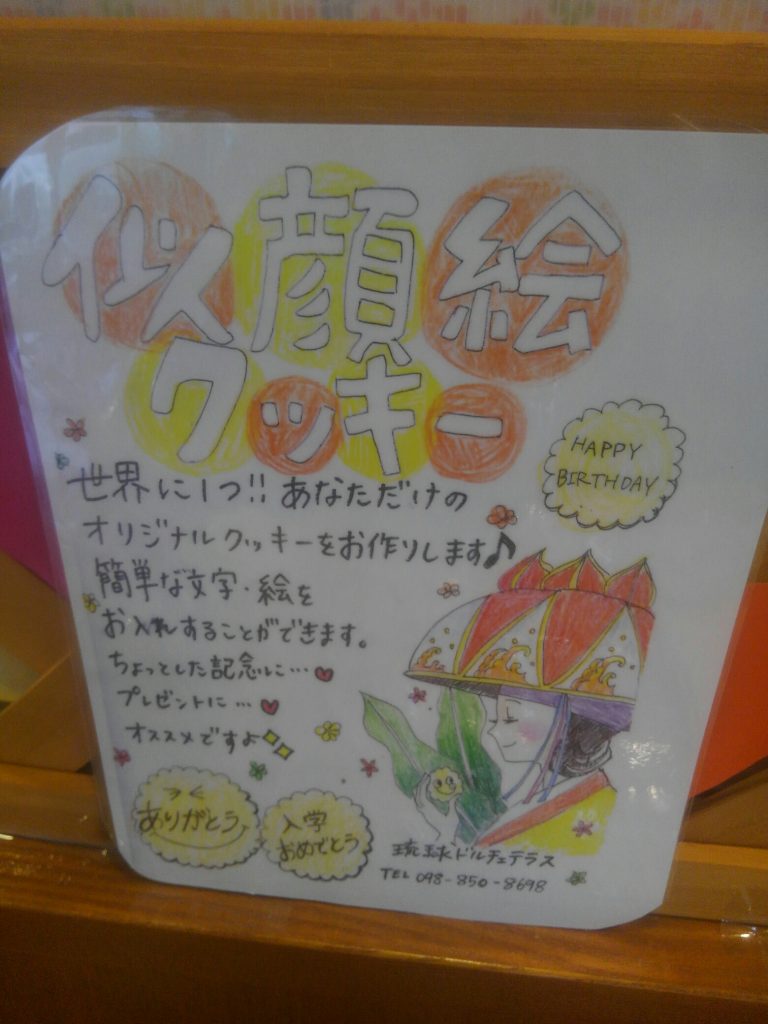 似顔絵
クッキー
HAPPY
BIRTHDAY
世界に1つ!! あなただけの
オリジナルクッキーをお作りします♪
簡単な文字・絵を
お入れすることができます。
ちょっとした記念に…♥
プレゼントに…♥
オススメですよ
ありがとう
入学
おめでとう
琉球ドルチェテラス
TEL 098-850-8698